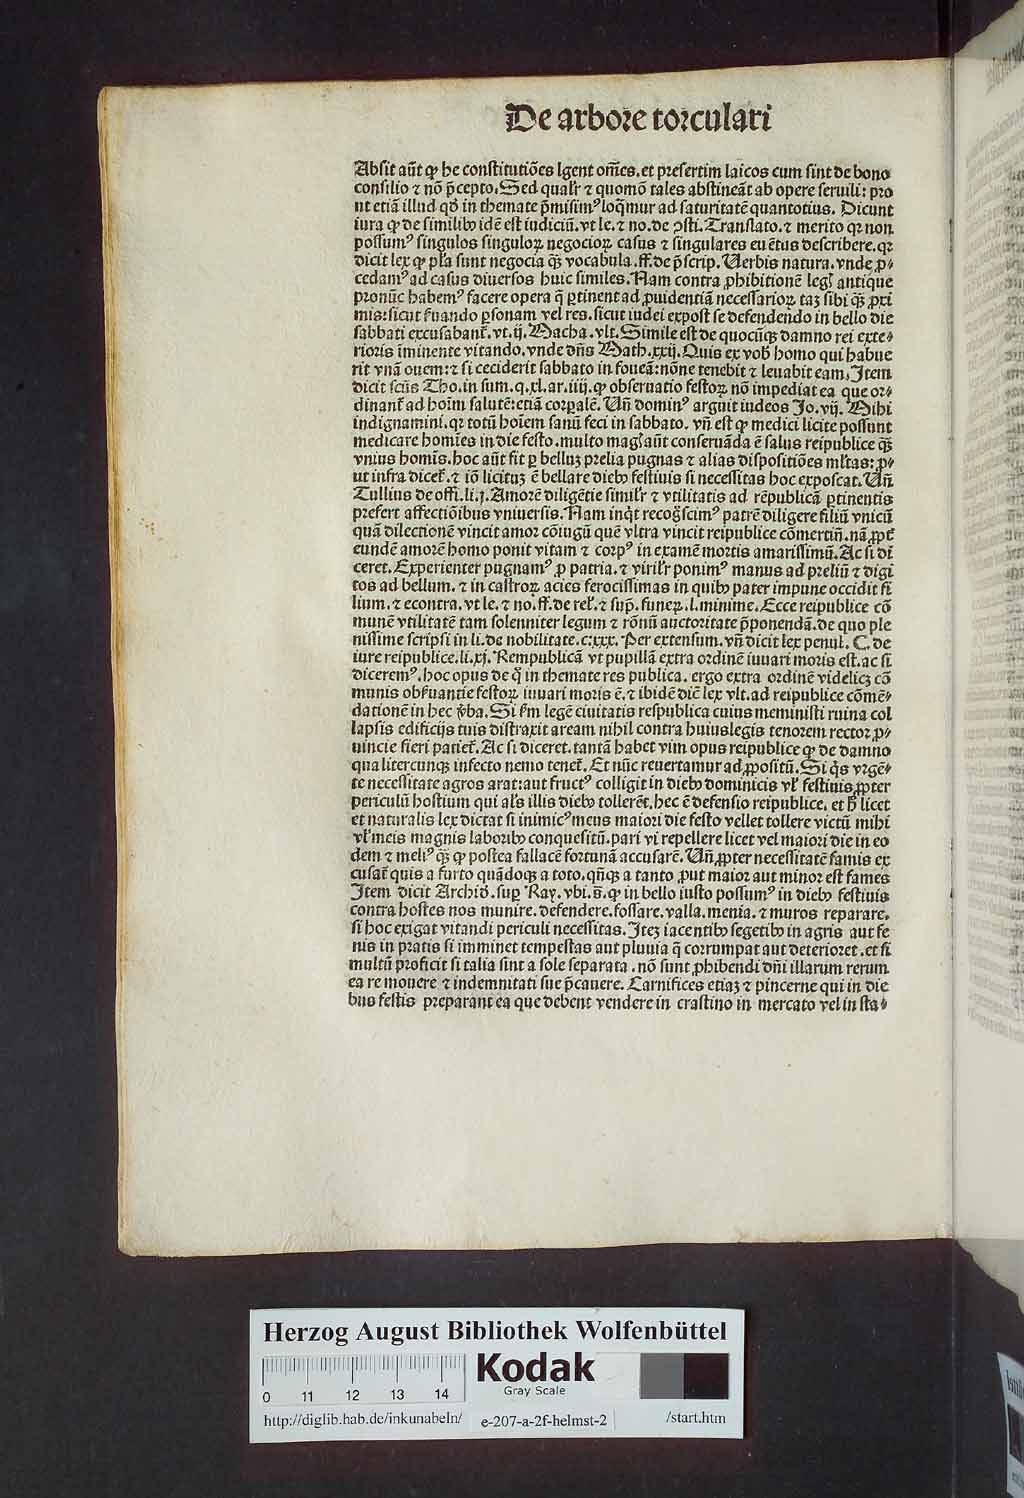 De arbore torculari
Absit aūt ꝙ he constitutiōes lgent om̄es. et presertim laicos cum sint de bono
consilio ⁊ nō p̄cepto. Sed qualr̄ ⁊ quomō tales abstineāt ab opere seruili: pro
ut etiā illud qd̄ in themate p̄misimꝰ loq̄mur ad saturitatē quantotius. Dicunt
iura ꝙ de similibꝫ idē est iudiciū. vt le. ⁊ no. de ꝯsti. Translato. ⁊ merito qꝛ non
possumꝰ singulos singuloꝝ negocioꝝ casus ⁊ singulares euētus describere. qꝛ
dicit lex ꝙ pl̄a sunt negocia qꝫ̄ vocabula. ff. de p̄scrip. Uerbis natura. vnde ꝓ⸗
cedamꝰ ad casus diuersos huic similes. Nam contra ꝓhibitionē legꝭ antique
pronūc habemꝰ facere opera q̄ ꝑtinent ad ꝓuidentiā necessarioꝝ taꝫ sibi qꝫ̄ ꝓxi
mis: sicut ẜuando ꝑsonam vel res. sicut iudei expost se defendendo in bello die
sabbati excusabant᷑. vt. ij. Macha. vlt. Simile est de quocūqꝫ damno rei exte⸗
rioris īminente vitando. vnde dn̄s Math. xxij. Quis ex vob̄ homo qui habue
rit vnā ouem: ⁊ si ceciderit sabbato in foueā: nōne tenebit ⁊ leuabit eam, Item
dicit sctūs Tho. in sum. q. xl. ar. iiij. ꝙ obseruatio festoꝝ nō impediat ea que or⸗
dinant᷑ ad hoīm salutē: etiā corꝑalē. Un̄ dominꝰ arguit iudeos Jo. vij. Mihi
indignamini. qꝛ totū hoīem sanū feci in sabbato. vn̄ est ꝙ medici licite possunt
medicare homīes in die festo. multo magꝭ aūt conseruāda ē salus reipublice qꝫ̄
vnius homīs. hoc aūt fit ꝑ belluꝫ prelia pugnas ⁊ alias dispositiōes ml̄tas: ꝓ⸗
ut infra dicet᷑. ⁊ iō licituꝫ ē bellare diebꝫ festiuis si necessitas hoc exposcat. Un̄
Tullius de offi. li. j. Amorē diligētie simil̄r ⁊ vtilitatis ad rēpublicā ꝑtinentis
prefert affectiōibus vniuersis. Nam inqͥt recog̊scimꝰ patrē diligere filiū vnicū
quā dilectionē vincit amor cōiugū quē vltra vincit reipublice cōmertiū. nā ꝓpt᷑
eundē amorē homo ponit vitam ⁊ corpꝰ in examē mortis amarissimū. Ac si di
ceret. Experienter pugnamꝰ ꝓ patria. ⁊ viril̄r ponimꝰ manus ad preliū ⁊ digi
tos ad bellum. ⁊ in castroꝝ acies ferocissimas in quibꝫ pater impune occidit fi
lium. ⁊ econtra. vt le. ⁊ no. ff. de rel̄. ⁊ sup̄. funeꝝ. l. minime. Ecce reipublice cō
munē vtilitatē tam solenniter legum ⁊ rōnū auctoritate p̄ponendā. de quo ple
nissime scripsi in li. de nobilitate. c. xxx. Per extensum. vn̄ dicit lex penul. C. de
iure reipublice. li. xj. Rempublicā vt pupillā extra ordinē iuuari moris est. ac si
diceremꝰ. hoc opus de q̊ in themate res publica. ergo extra ordinē videlicꝫ cō
munis obẜuantie festoꝝ iuuari moris ē. ⁊ ibidē diē lex vlt. ad reipublice cōmē⸗
dationē in hec v̄ba. Si ẜm legē ciuitatis respublica cuius meministi ruina col
lapsis edificijs tuis distraxit aream nihil contra huius legis tenorem rector ꝓ⸗
uincie fieri patiet᷑. Ac si diceret. tantā habet vim opus reipublice ꝙ de damno
qualitercunqꝫ infecto nemo tenet᷑. Et nūc reuertamur ad ꝓpositū. Si qͥs vrgē⸗
te necessitate agros arat: aut fructꝰ colligit in diebꝫ dominicis vl̄ festiuis ꝓpter
periculū hostium qui al̄s illis diebꝫ tollerēt. hec ē defensio reipublice. et h̄ licet
et naturalis lex dictat si inimicꝰ meus maiori die festo vellet tollere victū mihi
vl̄ meis magnis laboribꝫ conquesitū. pari vi repellere licet vel maiori die in eo
dem ⁊ meliꝰ qꝫ̄ ꝙ postea fallacē fortunā accusarē. Un̄ ꝓpter necessitatē famis ex
cusat᷑ quis a furto quādoqꝫ a toto. qn̄qꝫ a tanto ꝓut maior aut minor est fames
Item dicit Archid̄. suꝑ Ray. vbi. s̄. ꝙ in bello iusto possumꝰ in diebꝫ festiuis
contra hostes nos munire. defendere. fossare. valla. menia. ⁊ muros reparare.
si hoc exigat vitandi periculi necessitas. Iteꝫ iacentibꝫ segetibꝫ in agris aut fe
nis in pratis si imminet tempestas aut pluuia q̄ corrumpat aut deterioret. et si
multū proficit si talia sint a sole separata. nō sunt ꝓhibendi dn̄i illarum rerum
ea re mouere ⁊ indemnitati sue p̄cauere. Carnifices etiaꝫ ⁊ pincerne qui in die
bus festis preparant ea que debent vendere in crastino in mercato vel in sta⸗
Herzog August Bibliothek Wolfenbüttel
Kodak
Gray Scale
0 11 12 13 14
http://diglib.hab.de/inkunabeln/ e-207-a-2f-helmst-2 /start.htm